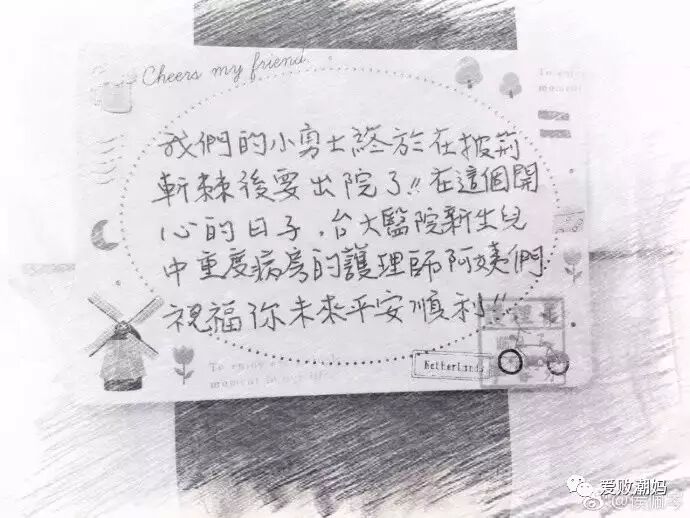 Cheers my friend
To enjoy
moment
我們的小勇士終於在披荊
斬棘後要出院了!!在這個開
心的日子,台大醫院新生兒
中重度病房的護理師阿姨們
祝福你未來平安順利!!
To enjoy a
moment in my life
Netherlands
爱败潮妈